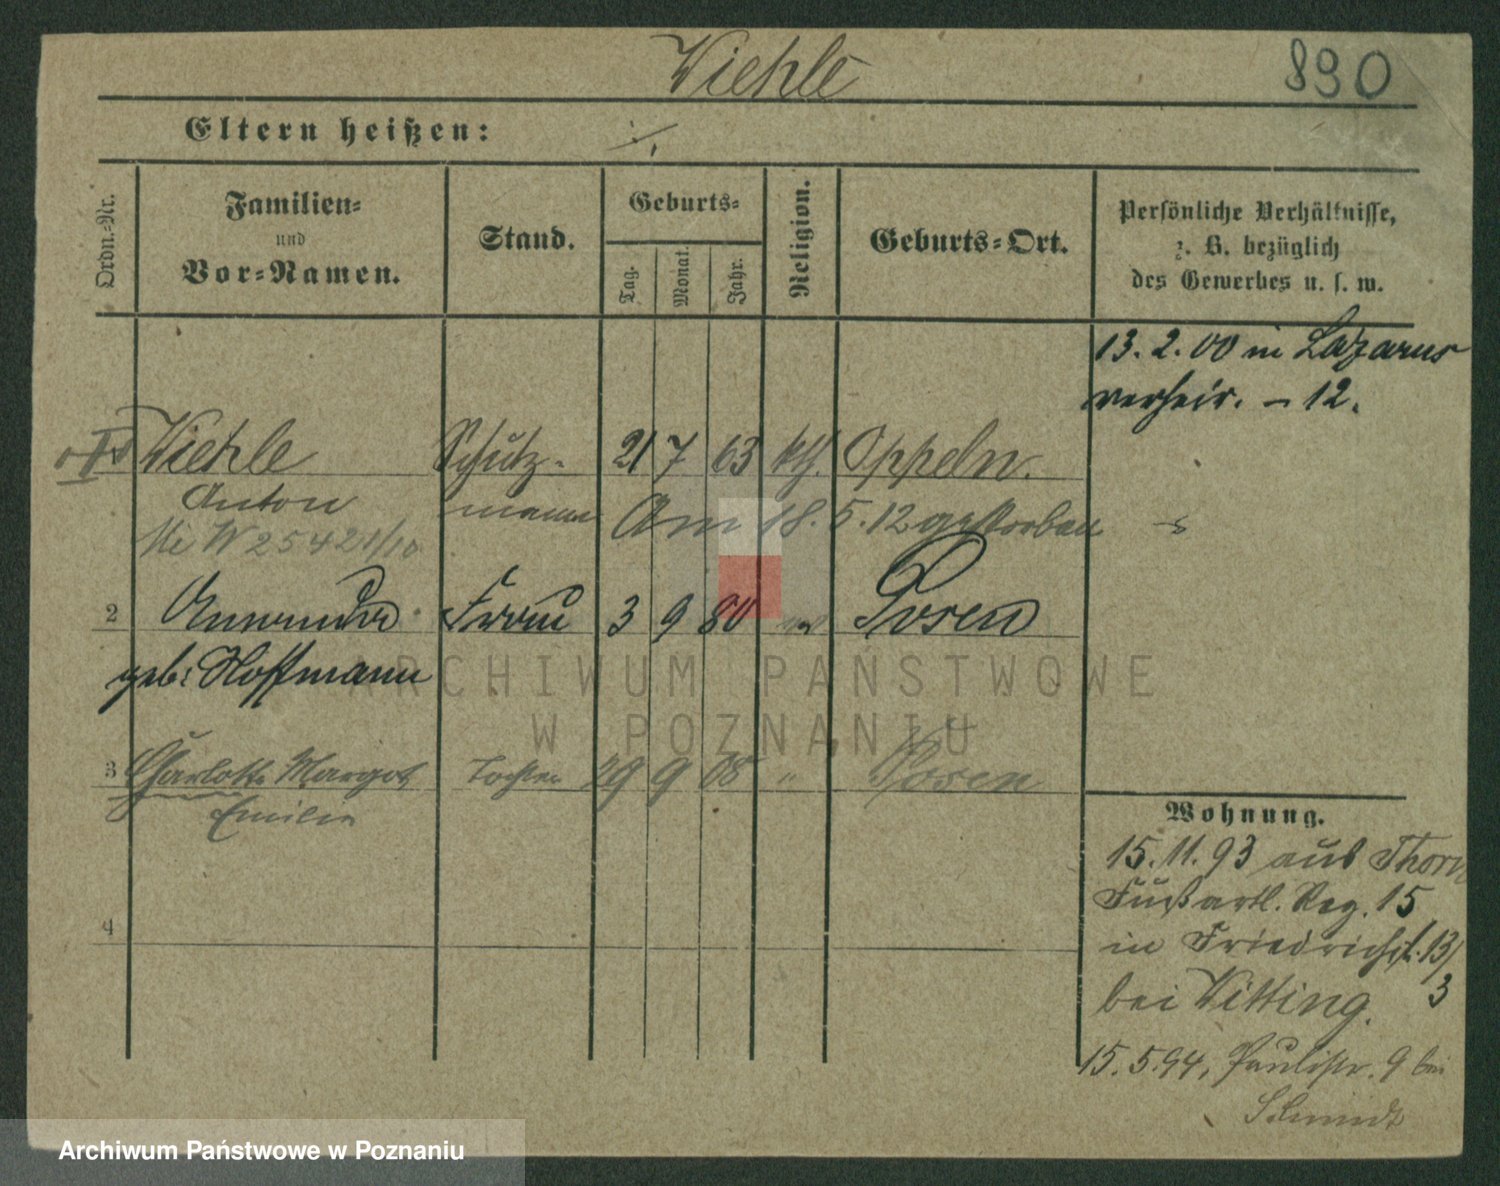 Viehle 890
Eltern heißen: ·/.
Ordn.-Nr.
Familien-
und
Vor-Namen.
Stand.
Geburts-
Tag.
Monat.
Jahr.
Religion.
Geburts-Ort.
Persönliche Verhältnisse,
z. B. bezüglich
des Gewerbes u. s. w.
13. 2. 00 in Lazarus
verheir. – 12.
Viehle Schutz- 21 7 63 kth. Oppeln.
Anton mann Am 18. 5. 12 gestorben
W 2542 1/10
2 Frau 3 9 80 Posen
geb: Hoffmann
3 Charlotte Margot Tochter 29 9 08 " Posen
Emilie
4
Wohnung.
15. 11. 93 aus Thorn
Fußartl. Reg. 15
in Friedrichst. 13/
3
bei Vitting.
15. 5. 94, Paulistr. 9 bei
Schmidt
ARCHIWUM PAŃSTWOWE
W POZNANIU
Archiwum Państwowe w Poznaniu